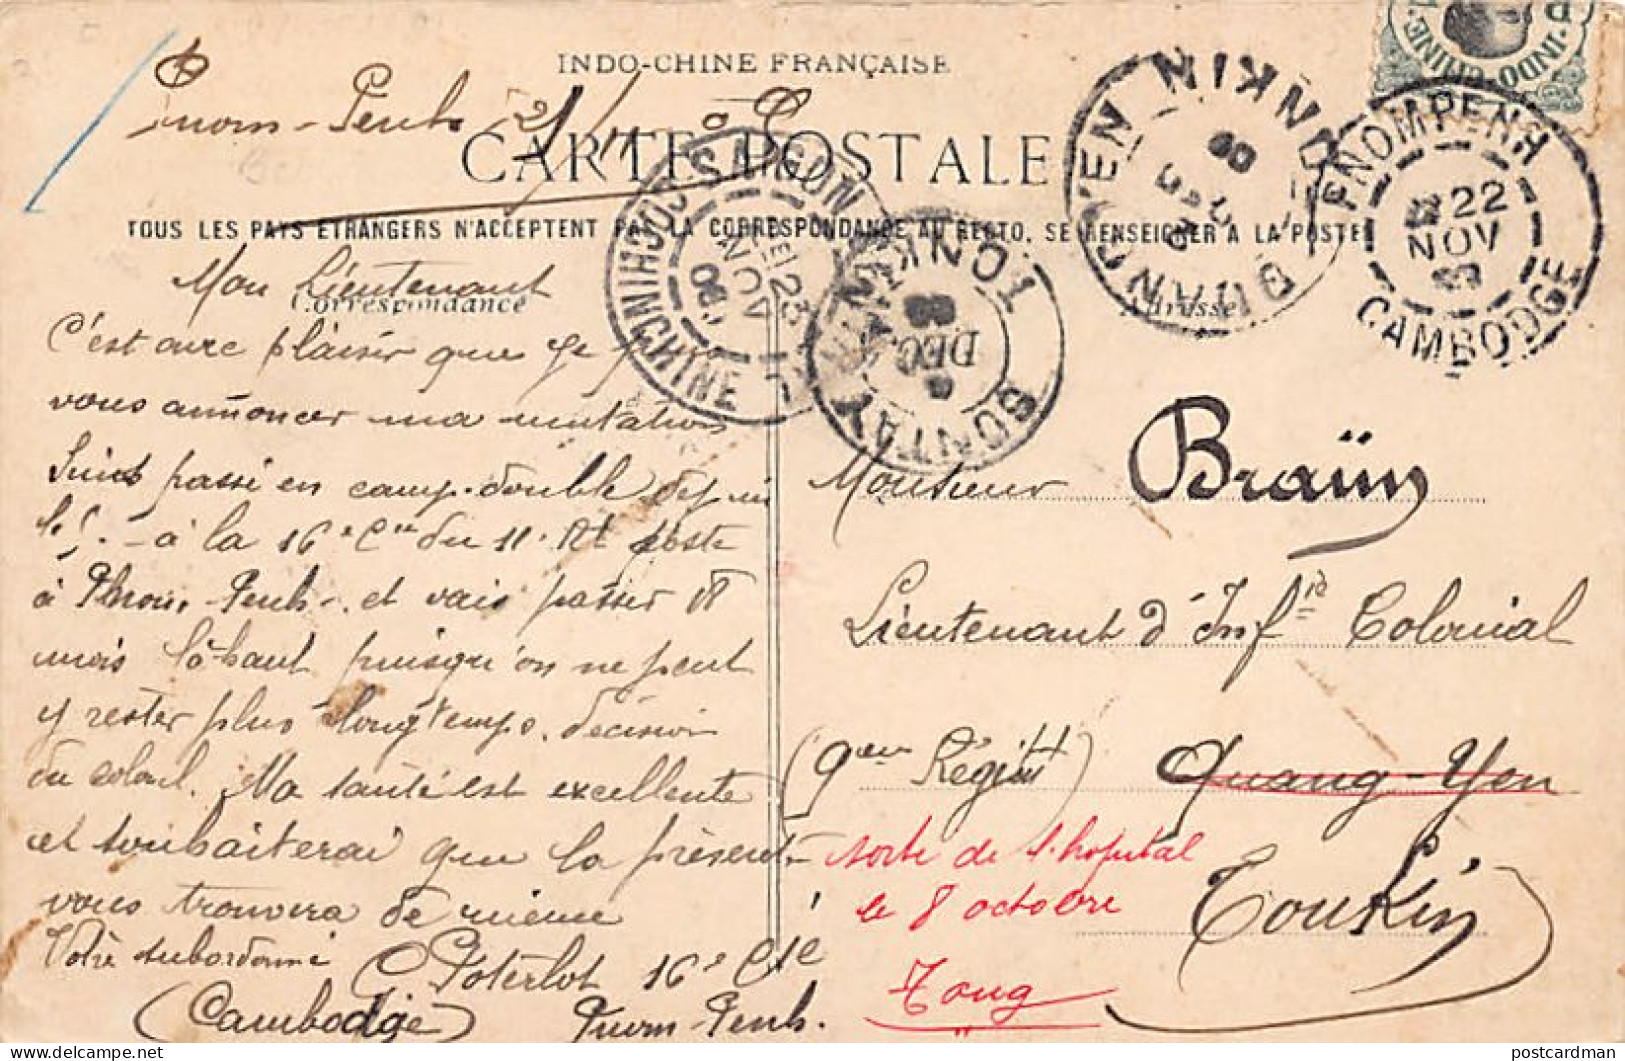 INDO-CHINE FRANÇAISE
Pnom-Penh 21/11
CARTE POSTALE
TOUS LES PAYS ÉTRANGERS N'ACCEPTENT PAS LA CORRESPONDANCE AU RECTO. SE RENSEIGNER A LA POSTE
Correspondance
Adresse
INDO-CHINE
SAIGON COCHINCHINE
23 NOV 09
SONTAY TONKIN
8 DEC. 09
QUANG YEN TONKIN
PNOMPENH CAMBODGE
22 NOV 09
Mon Lieutenant
C'est avec plaisir que je
vous annoncer ma mutation
Suis passé en camp. double depuis
à la 16e Cie du 11e Rt poste
à Phnom-Penh et vais passer 18
mois là-haut puisqu'on ne peut
y rester plus longtemps, décision
du colonel. Ma santé est excellente
et souhaiterai que la présente
vous trouvera de même
Votre subordonné
C Poterlot 16e Cie
(Cambodge) Pnom-Penh.
Monsieur Braün
Lieutenant d'Infie Colonial
(9eme Régiment) Quang-Yen
Tonkin
sorti de l'hopital
le 8 octobre
Tong
postcardman